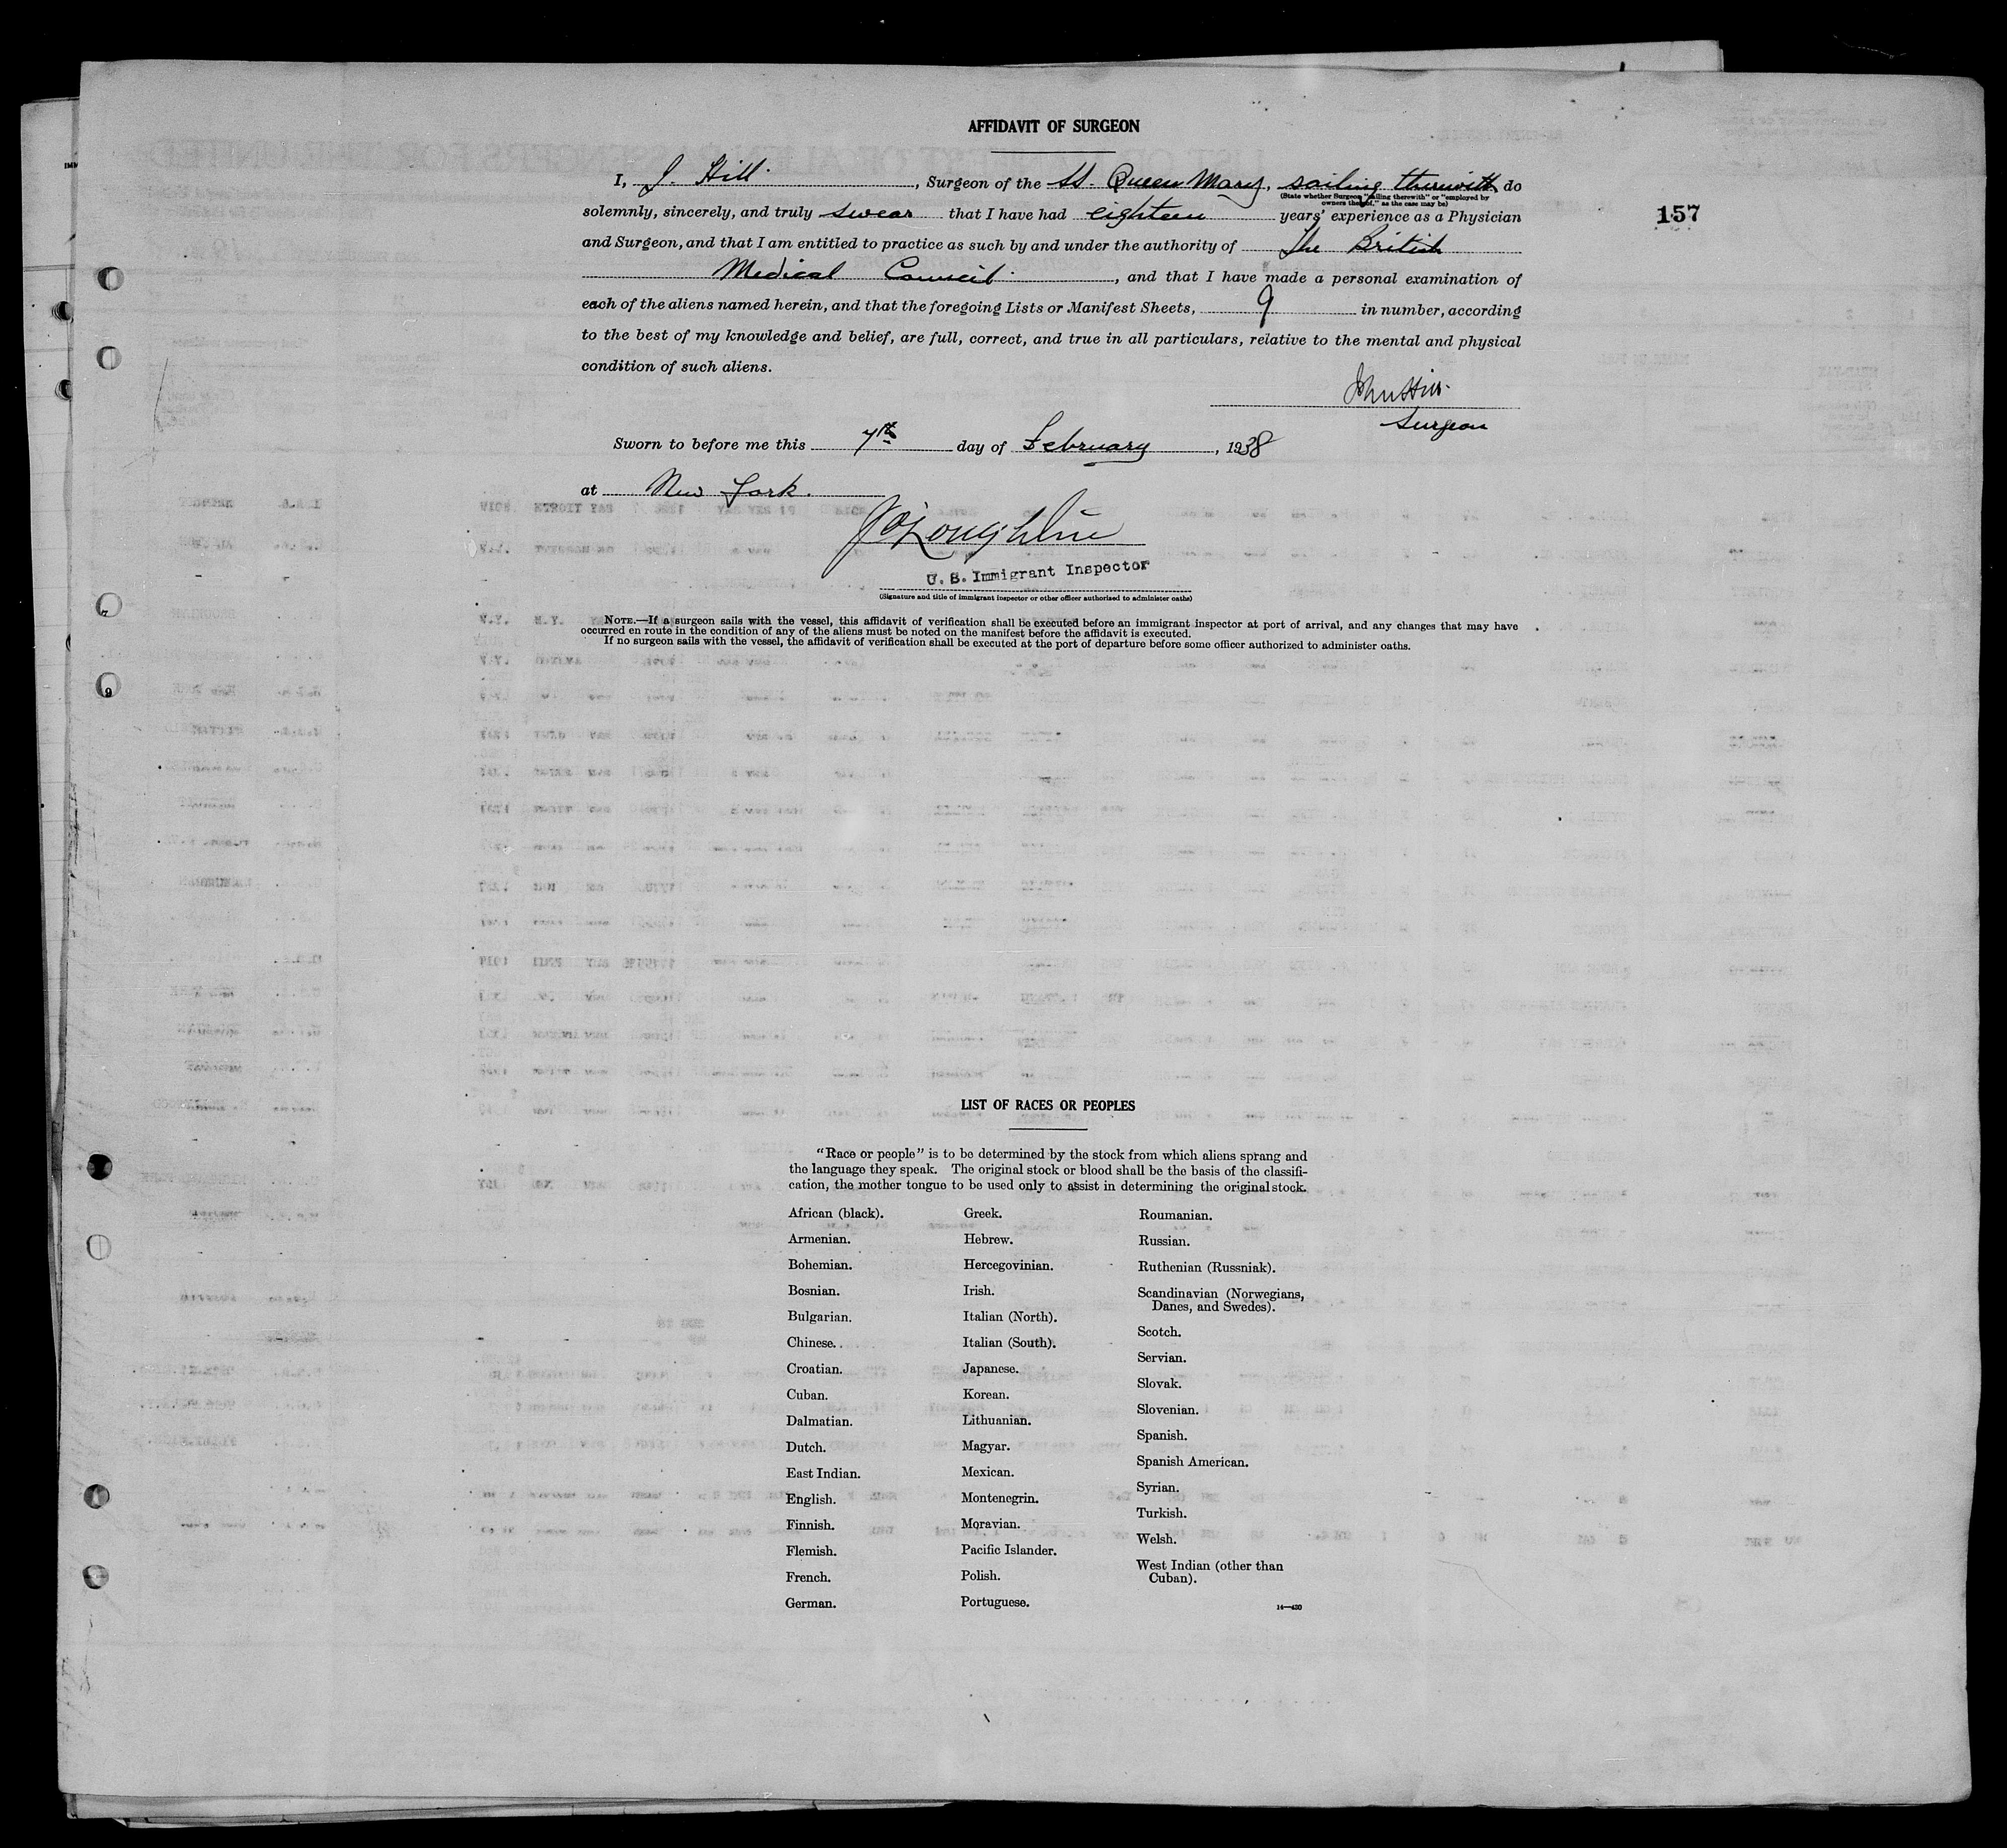 AFFIDAVIT OF SURGEON
I, J. Hill, Surgeon of the SS. Queen Mary, sailing therewith do
(State whether Surgeon "sailing therewith" or "employed by
owners thereof," as the case may be)
157
solemnly, sincerely, and truly swear that I have had eighteen years' experience as a Physician
and Surgeon, and that I am entitled to practice as such by and under the authority of The British
Medical Council, and that I have made a personal examination of
each of the aliens named herein, and that the foregoing Lists or Manifest Sheets, 9 in number, according
to the best of my knowledge and belief, are full, correct, and true in all particulars, relative to the mental and physical
condition of such aliens.
John Hill
Surgeon
Sworn to before me this 7th day of February, 1938
at New York.
J O'Loughlin
U. S. Immigrant Inspector
(Signature and title of immigrant inspector or other officer authorized to administer oaths)
NOTE.—If a surgeon sails with the vessel, this affidavit of verification shall be executed before an immigrant inspector at port of arrival, and any changes that may have
occurred en route in the condition of any of the aliens must be noted on the manifest before the affidavit is executed.
If no surgeon sails with the vessel, the affidavit of verification shall be executed at the port of departure before some officer authorized to administer oaths.
LIST OF RACES OR PEOPLES
"Race or people" is to be determined by the stock from which aliens sprang and
the language they speak. The original stock or blood shall be the basis of the classifi-
cation, the mother tongue to be used only to assist in determining the original stock.
African (black).
Armenian.
Bohemian.
Bosnian.
Bulgarian.
Chinese.
Croatian.
Cuban.
Dalmatian.
Dutch.
East Indian.
English.
Finnish.
Flemish.
French.
German.
Greek.
Hebrew.
Hercegovinian.
Irish.
Italian (North).
Italian (South).
Japanese.
Korean.
Lithuanian.
Magyar.
Mexican.
Montenegrin.
Moravian.
Pacific Islander.
Polish.
Portuguese.
Roumanian.
Russian.
Ruthenian (Russniak).
Scandinavian (Norwegians,
Danes, and Swedes).
Scotch.
Servian.
Slovak.
Slovenian.
Spanish.
Spanish American.
Syrian.
Turkish.
Welsh.
West Indian (other than
Cuban).
14—430